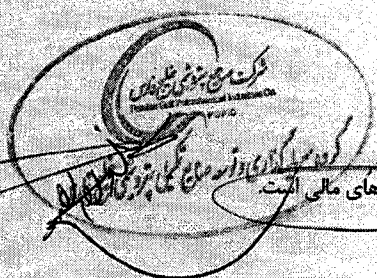 شرکت صنایع پتروشیمی خلیج فارس
Persian Gulf Petrochemical Industries Co.
گروه سرمایه گذاری و توسعه صنایع تکمیلی پتروشیمی خلیج فارس
های مالی است.